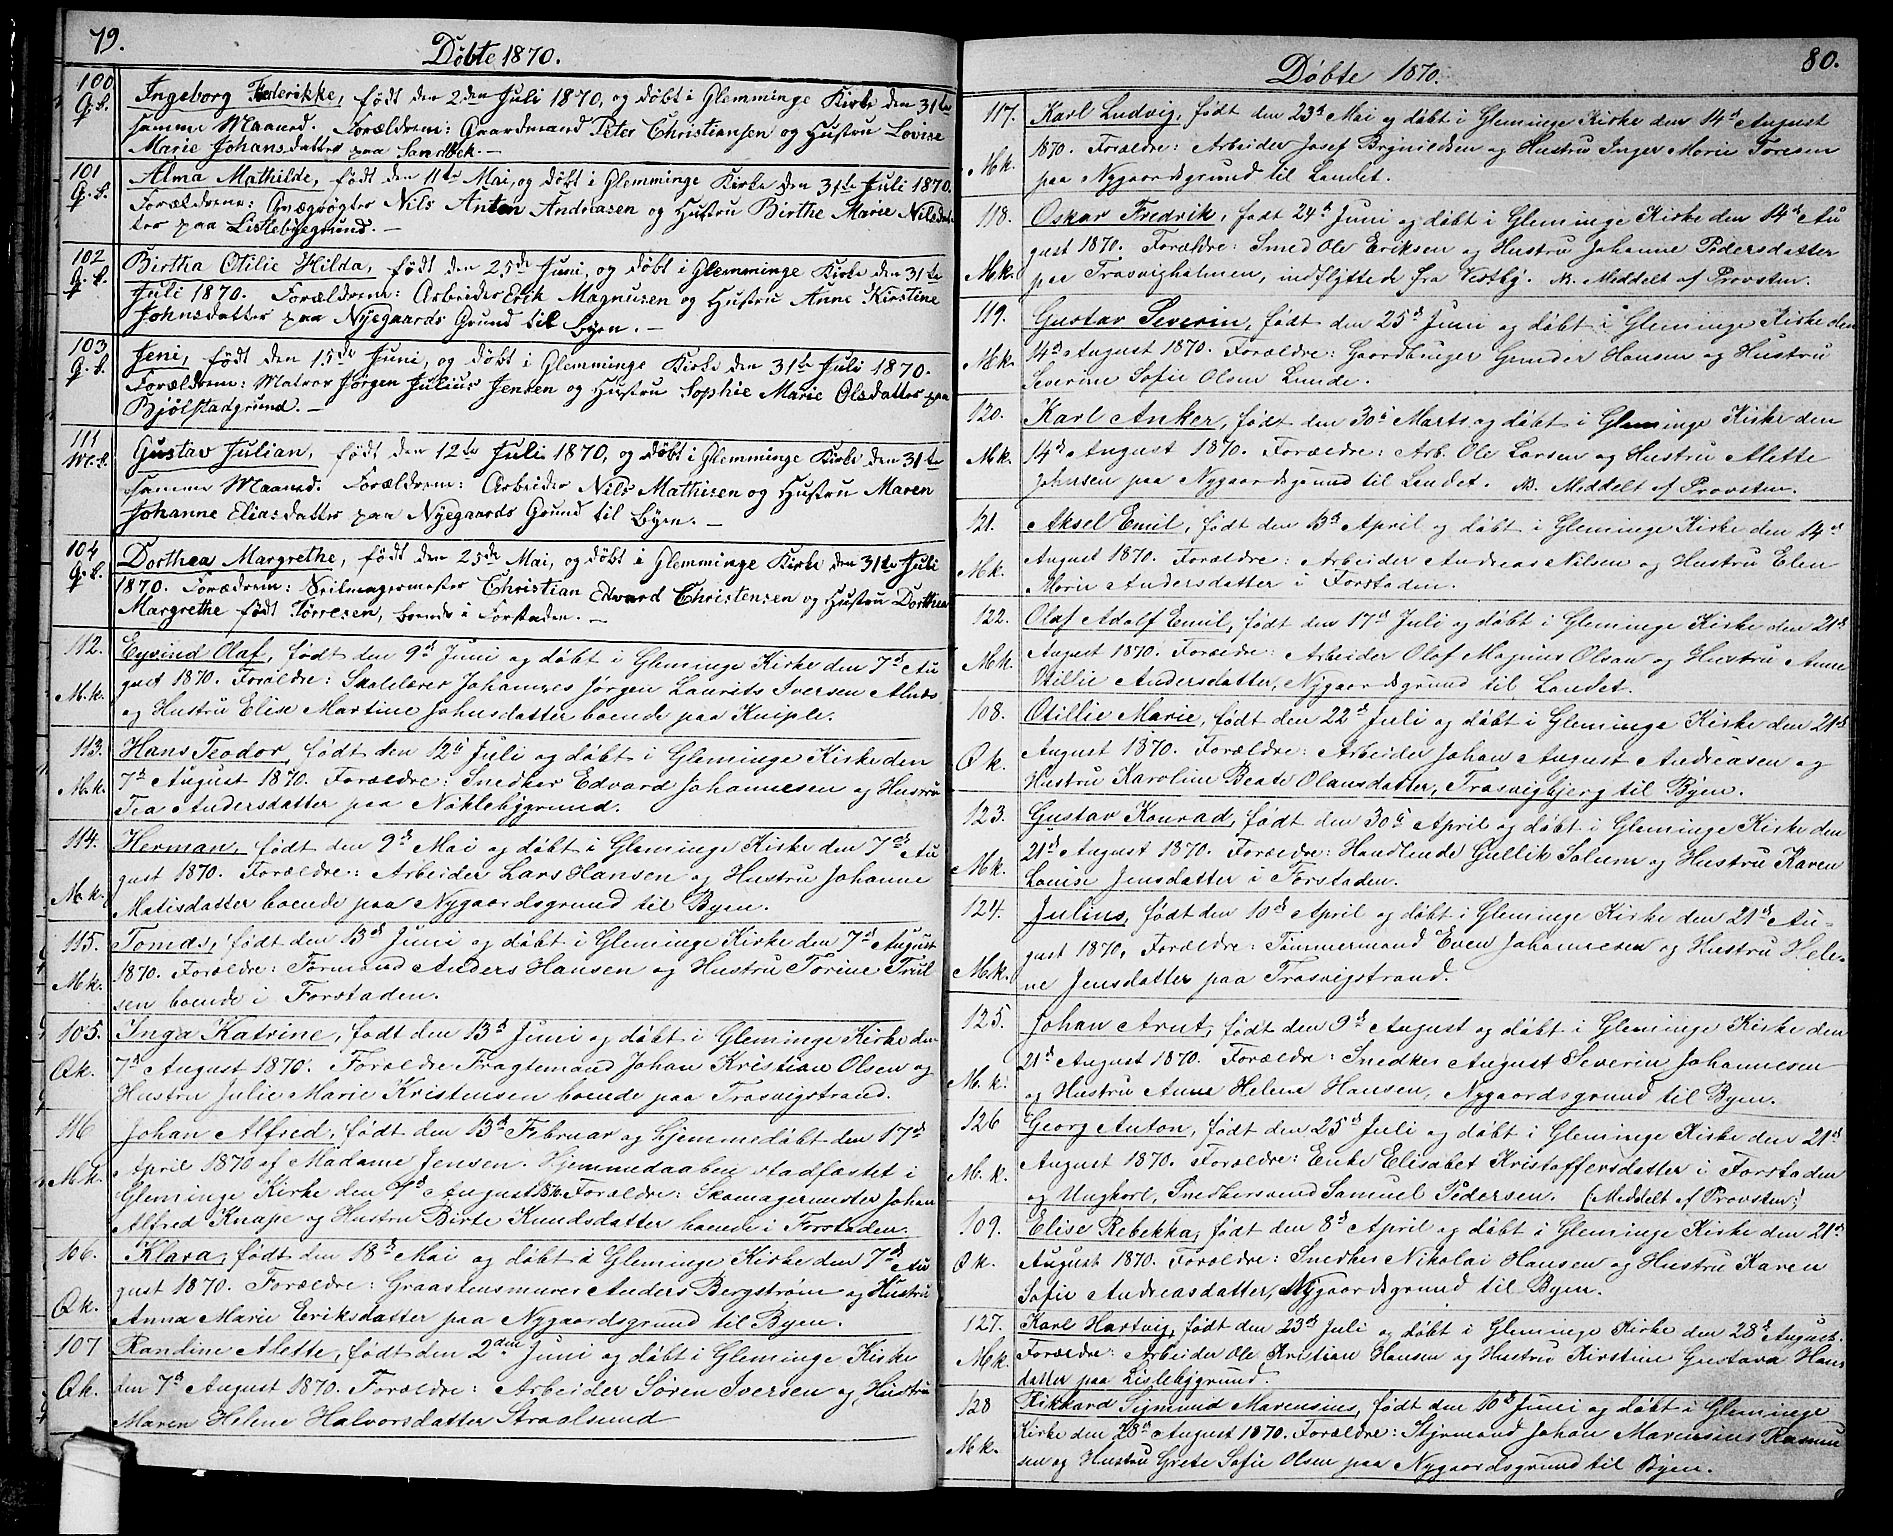 79.
Døbte 1870.
100 Ingeborg Frederikke, født den 2den Juli 1870, og døbt i Glemminge Kirke den 31te
Q. k. samme Maaned. Forældrene: Gaardmand Peter Christiansen og Hustru Lovise
Marie Johansdatter paa Sandbek. —
101 Alma Mathilde, født den 11te Mai, og døbt i Glemminge Kirke den 31te Juli 1870.
Q. k. Forældrene: Nils Anton Andreasen og Hustru Birthe Marie Nilsdat-
ter paa Lislebyegrund. —
102 Birtha Otilie Hilda, født den 25de Juni, og døbt i Glemminge Kirke den 31te
Q. k. Juli 1870. Forældrene: Arbeider Erik Magnusen og Hustru Anne Kirstine
Johnsdatter paa Nyegaards Grund til Byen. —
103 Jeni, født den 15de Juni, og døbt i Glemminge Kirke den 31te Juli 1870.
Q. k. Forældrene: Matros Jørgen Julius Jensen og Hustru Sophie Marie Olsdatter paa
Bjølstadgrund. —
111 Gustav Julian, født den 12te Juli 1870, og døbt i Glemminge Kirke den 31te
M. k. samme Maaned. Forældrene: Arbeider Nils Mathisen og Hustru Maren
Johanne Eliasdatter paa Nyegaards Grund til Byen. —
104 Dorthea Margrethe, født den 25de Mai, og døbt i Glemminge Kirke den 31te Juli
Q. k. 1870. Forældrene: Seilmagermester Christian Edvard Christensen og Hustru Dorthea
Margrethe født Tørresen, boende i Forstaden. —
112. Eyvind Olaf, født den 9d Juni og døbt i Gleminge Kirke den 7d Au
M. k. gust 1870. Forældre: Skolelærer Johannes Jørgen Laurits Iversen Alnæs
og Hustru Elise Martine Johnsdatter boende paa Kniple.
113. Hans Teodor, født den 12d Juli og døbt i Gleminge Kirke den
M. k. 7d August 1870. Forældre: Snedker Edvard Johannesen og Hustru
Tea Andersdatter paa Niklebygrund.
114. Herman, født den 9d Mai og døbt i Gleminge Kirke den 7d Au
M. k. gust 1870. Forældre: Arbeider Lars Hansen og Hustru Johanne
Matisdatter boende paa Nygaardsgrund til Byen.
115. Tomas, født den 13d Juni og døbt i Gleminge Kirke den 7d August
M k. 1870. Forældre: Formand Anders Hansen og Hustru Torine Trul
sen boende i Forstaden.
105. Inga Katrine, født den 13d Juni og døbt i Gleminge Kirke den
Q k. 7d August 1870. Forældre Fragtemand Johan Kristian Olsen og
Hustru Julie Marie Kristensen boende paa Trosvigstrand.
116 Johan Alfred, født den 13d Februar og hjemmedøbt den 17d
M k. April 1870 af Madame Jensen. Hjemmedaaben stadfæstet i
Gleminge Kirke den 7d August 1870. Forældre: Skomagermester Johan
Alfred Knape og Hustru Birte Knudsdatter boende i Forstaden.
106. Klara, født den 18d Mai og døbt i Gleminge Kirke den 7d Au
Q k. gust 1870. Forældre: Graastensmurer Anders Bergstrøm og Hustru
Anna Marie Eriksdatter paa Nygaardsgrund til Byen.
107 Randine Alette, født den 2den Juni og døbt i Gleminge Kirke
Q k. den 7d August 1870. Forældre: Arbeider Søren Iversen og Hustru
Maren Helene Halvorsdatter Straalsund
80.
Døbte 1870.
117. Karl Ludvig, født den 23d Mai og døbt i Gleminge Kirke den 14d August
M k. 1870. Forældre: Arbeider Josef Brynildsen og Hustru Inger Marie Toresen
paa Nygaardsgrund til Landet.
118. Oskar Fredrik, født 24d Juni og døbt i Gleminge Kirke den 14d Au
M k. gust 1870. Forældre: Smed Ole Eriksen og Hustru Johanne Pedersdatter
paa Trosvigholmen, indflyttede fra Vestby. N. Meddelt af Provsten.
119. Gustav Severin, født den 25d Juni og døbt i Gleminge Kirke den
M k. 14d August 1870. Forældre: Gaardbruger Gunder Hansen og Hustru
Severine Sofie Olsen Lunde.
120. Karl Anker, født den 30d Marts og døbt i Gleminge Kirke den
M k. 14d August 1870. Forældre: Arb. Ole Larsen og Hustru Alette
Johnsen paa Nygaardsgrund til Landet. N. Meddelt af Provsten.
121. Aksel Emil, født den 13d April og døbt i Gleminge Kirke den 14d
M k. August 1870. Forældre: Arbeider Andreas Nilsen og Hustru Elen
Marie Andersdatter i Forstaden.
122. Olaf Adolf Emil, født den 17d Juli og døbt i Gleminge Kirke den 21d
M k. August 1870. Forældre: Arbeider Olaf Magnus Olsen og Hustru Anne
Otillie Andersdatter, Nygaardsgrund til Landet.
108. Otillie Marie, født den 22d Juli og døbt i Gleminge Kirke den 21d
Q k. August 1870. Forældre: Arbeider Johan August Andreasen og
Hustru Karoline Beate Olausdatter, Trosvigbjerg til Byen.
123. Gustav Konrad, født den 30d April og døbt i Gleminge Kirke den
M k. 21d August 1870. Forældre: Handlende Gullik Solum og Hustru Karen
Louise Jensdatter i Forstaden.
124. Julius, født den 10d April og døbt i Gleminge Kirke den 21d Au-
M. k. gust 1870. Forældre: Tømmermand Even Johannesen og Hustru Hele-
ne Jensdatter paa Trosvigstrand.
125. Johan Arnt, født den 9d August og døbt i Gleminge Kirke den
M. k. 21d August 1870. Forældre: Snedker August Severin Johannesen
og Hustru Anne Helene Hansen, Nygaardsgrund til Byen.
126 Georg Anton, født den 25d Juli og døbt i Gleminge Kirke den 21d
M. k. August 1870. Forældre: Enke Elisabet Kristoffersdatter i Forstaden
og Ungkarl, Snedkersvend Samuel Pedersen. (Meddelt af Provsten.)
109. Elise Rebekka, født den 8d April og døbt i Gleminge Kirke den 21d
Q k. August 1870. Forældre: Snedker Nikolai Hansen og Hustru Karen
Sofie Andreasdatter, Nygaardsgrund til Byen.
127. Karl Hartvig, født den 23d Juli og døbt i Gleminge Kirke den 28d August.
M k. Forældre: Arbeider Ole Kristian Hansen og Hustru Kirstine Gustava Hans
datter paa Lislebygrund.
128 Rikhard Sigmund Marensius, født den 10d Juni og døbt i Gleminge
M k. Kirke den 28d August 1870. Forældre: Styrmand Johan Marensius Rasmu
sen og Hustru Grete Sofie Olsen paa Nygaardsgrund til Byen.